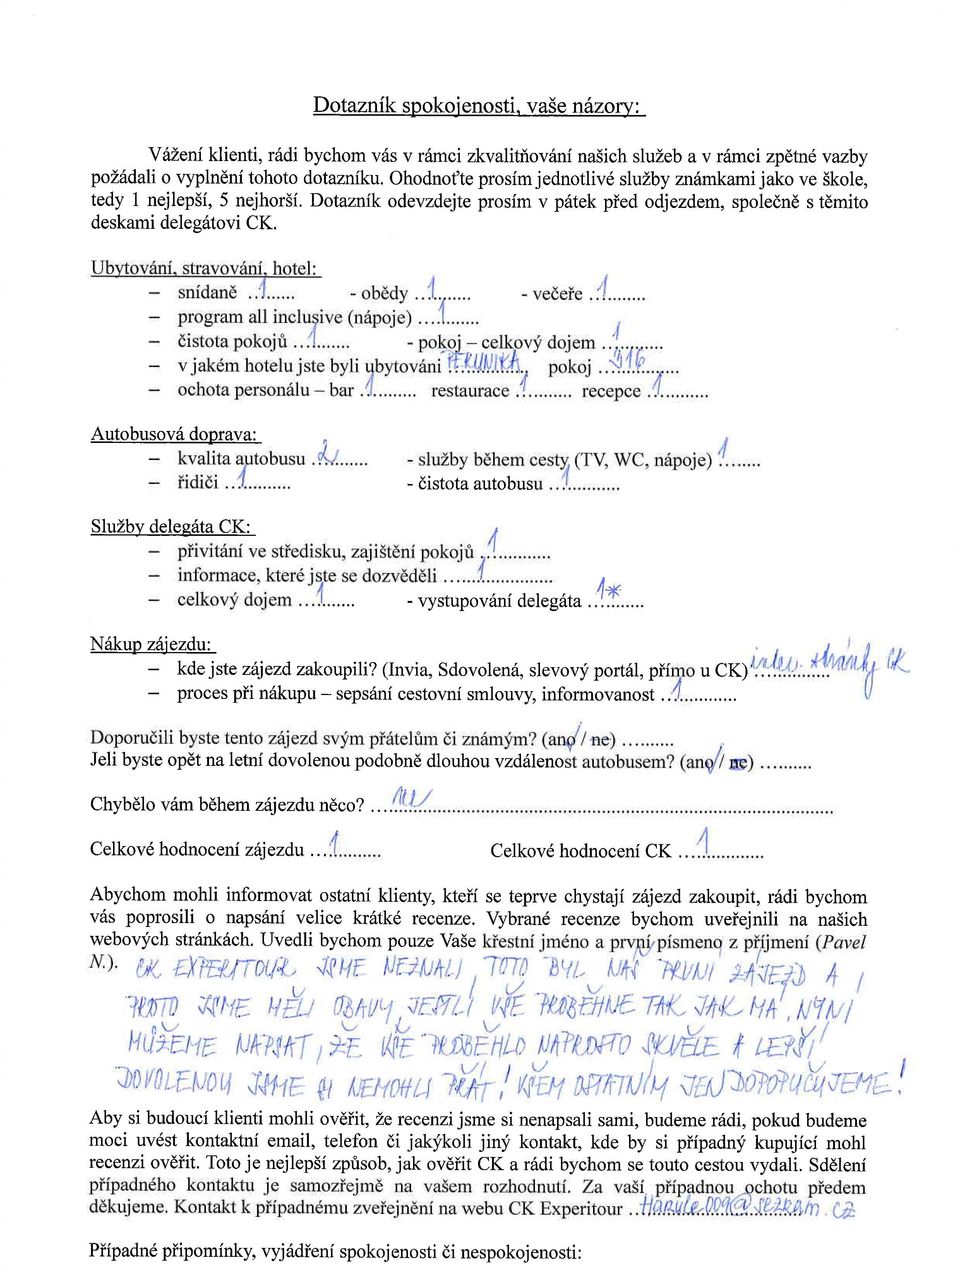 Dotazník spokojenosti, vaše názory:
Vážení klienti, rádi bychom vás v rámci zkvalitňování našich služeb a v rámci zpětné vazby
požádali o vyplnění tohoto dotazníku. Ohodnoťte prosím jednotlivé služby známkami jako ve škole,
tedy 1 nejlepší, 5 nejhorší. Dotazník odevzdejte prosím v pátek před odjezdem, společně s těmito
deskami delegátovi CK.
Ubytování, stravování, hotel:
– snídaně ..1...... - obědy ..1....... - večeře ..1.........
– program all inclusive (nápoje) ....1.......
– čistota pokojů ...1........ - pokoj – celkový dojem ...1.........
– v jakém hotelu jste byli ubytováni PERUNIKA.. pokoj ...316.........
– ochota personálu – bar ..1......... restaurace .1.......... recepce ..1...........
Autobusová doprava:
– kvalita autobusu ..2......... - služby během cesty (TV, WC, nápoje) 1........
– řidiči ...1.......... - čistota autobusu ...1............
Služby delegáta CK:
– přivitání ve středisku, zajištění pokojů ..1............
– informace, které jste se dozvěděli ......1..............
– celkový dojem ....1....... - vystupování delegáta ...1*........
Nákup zájezdu:
– kde jste zájezd zakoupili? (Invia, Sdovolená, slevový portál, přímo u CK) inter. stránky CK
– proces při nákupu – sepsání cestovní smlouvy, informovanost ..1............
Doporučili byste tento zájezd svým přátelům či známým? (ano / ne) ..........
Jeli byste opět na letní dovolenou podobně dlouhou vzdálenost autobusem? (ano / ne) ..........
Chybělo vám během zájezdu něco? ...ne...........................................................................
Celkové hodnocení zájezdu ....1.......... Celkové hodnocení CK ....1............
Abychom mohli informovat ostatní klienty, kteří se teprve chystají zájezd zakoupit, rádi bychom
vás poprosili o napsání velice krátké recenze. Vybrané recenze bychom uveřejnili na našich
webových stránkách. Uvedli bychom pouze Vaše křestní jméno a první písmeno z příjmení (Pavel
N.). CK EXPERITOUR JSME NEZNALI, TOTO BYL NÁŠ PRVNÍ ZÁJEZD A
PROTO JSME MĚLI OBAVY, JESTLI VŠE PROBĚHNE TAK JAK MÁ, NYNÍ
MŮŽEME NAPSAT, ŽE VŠE PROBĚHLO NAPROSTO SKVĚLE A LEPŠÍ
DOVOLENOU JSME SI NEMOHLI PŘÁT! VŠEM OSTATNÍM JEN DOPORUČUJEME!
Aby si budoucí klienti mohli ověřit, že recenzi jsme si nenapsali sami, budeme rádi, pokud budeme
moci uvést kontaktní email, telefon či jakýkoli jiný kontakt, kde by si případný kupující mohl
recenzi ověřit. Toto je nejlepší způsob, jak ověřit CK a rádi bychom se touto cestou vydali. Sdělení
případného kontaktu je samozřejmě na vašem rozhodnutí. Za vaši případnou ochotu předem
děkujeme. Kontakt k případnému zveřejnění na webu CK Experitour ..Hanule.009@seznam.cz
Případné připomínky, vyjádření spokojenosti či nespokojenosti: